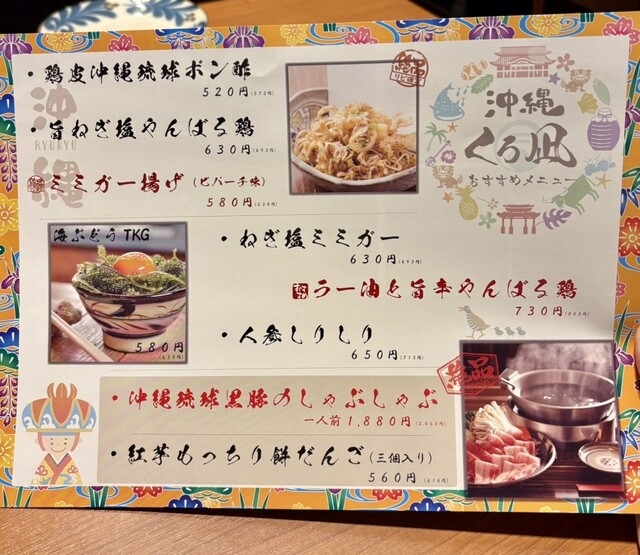 ・鶏皮沖縄琉球ポン酢
520円(572円)
・旨ねぎ塩やんばる鶏
630円(693円)
ミミガー揚げ(ピパーチ味)
580円(638円)
沖縄
RYUKYU
絶品
沖縄
くろ凪
おすすめメニュー
海ぶどうTKG
580円(638円)
・ねぎ塩ミミガー
630円(693円)
ラー油と旨辛やんばる鶏
730円(803円)
・人参しりしり
650円(715円)
絶品
・沖縄琉球黒豚のしゃぶしゃぶ
一人前1,880円(2,068円)
・紅芋もっちり餅だんご(三個入り)
560円(616円)